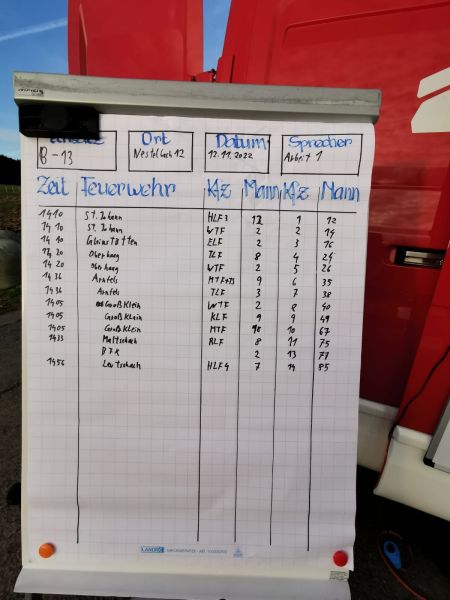 B-13
Ort
Nestelbach 12
Datum
12.11.2022
Sprecher
Arbeit 1
Zeit Feuerwehr Kfz Mann Kfz Mann
1410 St. Johann HLF3 12 1 12
1410 St. Johann WTF 2 2 14
1410 Gleinstätten ELF 2 3 16
1420 Oberhaag TLF 8 4 24
1420 Oberhaag WTF 2 5 26
1436 Arnfels 9 6 35
1436 Arnfels TLF 3 7 38
1405 Großklein WTF 2 8 40
1405 Großklein KLF 9 9 49
1405 Großklein MTF 10 67
1433 Maltschach RLF 8 11 75
2 13 77
1456 Leutschach HLF4 7 14 85
LANDRÉ